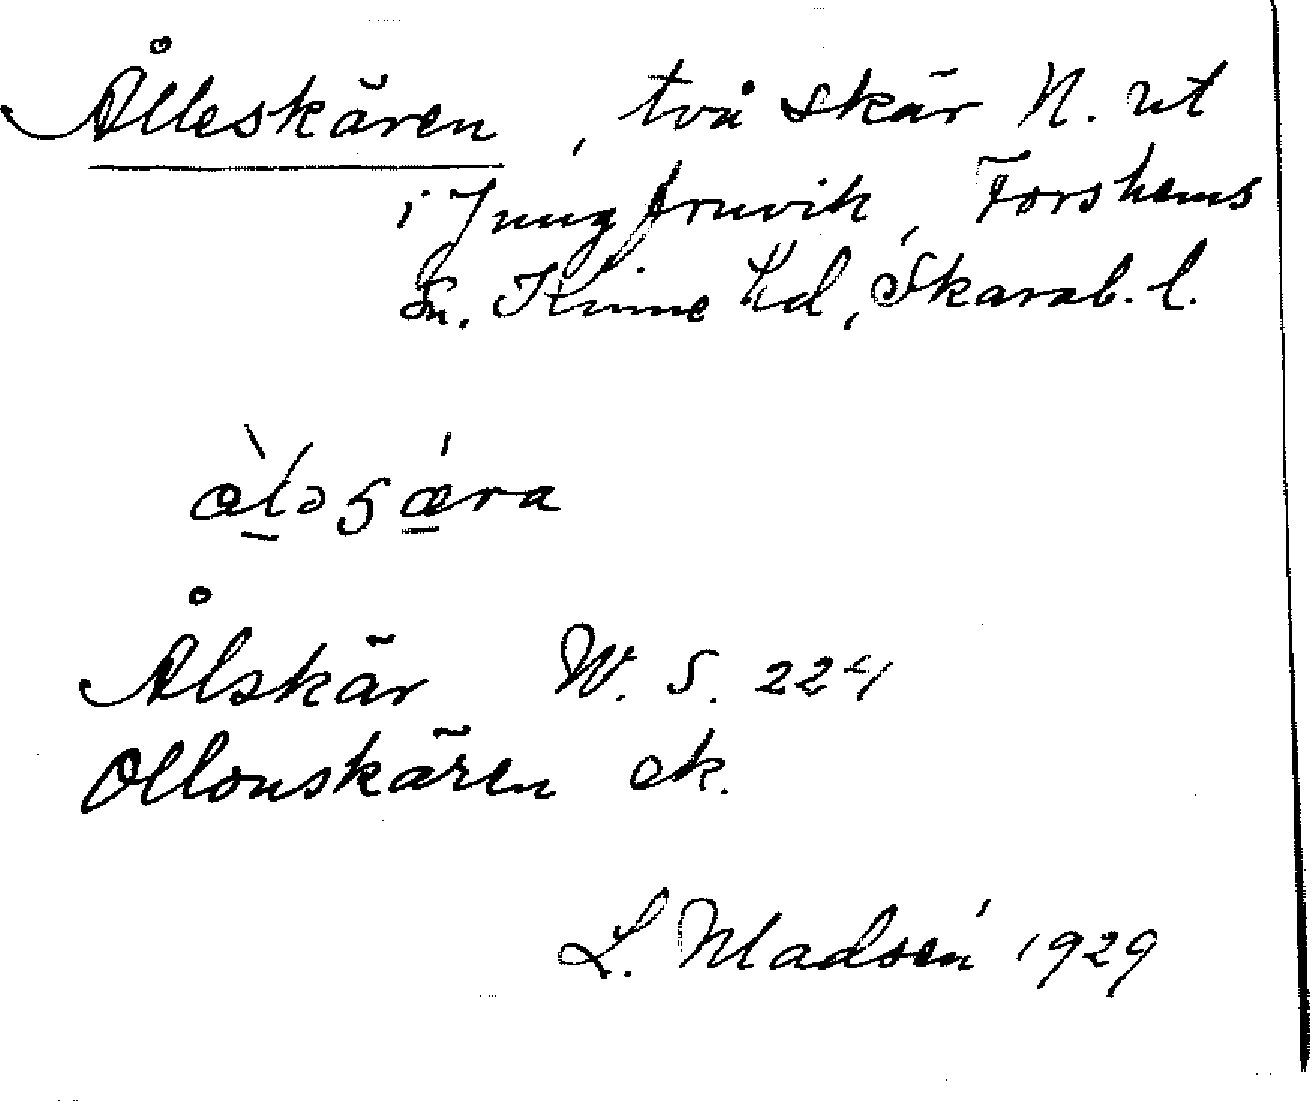 Ålleskären, två skär N. ut
i Jungfruvik, Forshems
sn. Kinne hd, Skarab. l.
Ålskär W. S. 224
Ollonskären ek.
L. Madsén 1929